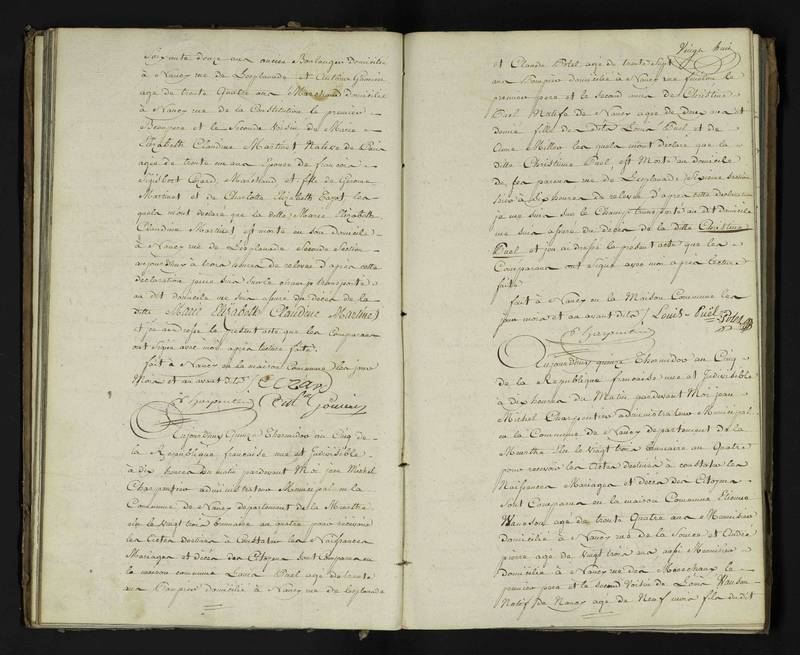 Soixante douze ans ancien Boulanger Domicilié
à Nancy rue de Lesplanade et Antoine Gomin
agé de trente Quatre ans Marchand domicilié
à Nancy rue de la Constitution le premier
Beaupere et le Second Voisin de Marie
Elizabeth Claudine Martinet Native de Paris
agée de trente un ans Epouse de françois
Marchand et fille de Gerome
Martinet et de Charlotte Elizabeth les
quels mont declaré que la ditte Marie Elizabeth
Claudine Martinet est morte en son domicile
à Nancy rue de Lesplanade Seconde Section
aujourdhuy à trois heures de relevée d'après cette
declaration je me suis sur le champ transporté
au dit domicile me suis assuré du décès de la
ditte Marie Elizabeth Claudine Martinet
et jai dressé le present acte que les Comparans
ont Signé avec moi après lecture faite
fait à Nancy en la maison commune les jour
Mois et an avant dits
Charpentier
Aujourdhuy Quinze Thermidor an Cinq de
la Republique française une et Indivisible
à dix heures du matin pardevant Moi jean Michel
Charpentier administrateur Municipal en la
Commune de Nancy departement de la Meurthe
élu le vingt trois brumaire an quatre pour recevoir
les Actes destinés à Constater les Naissances
Mariages et décès des Citoyens Sont Comparus en
la maison commune Louis Puel agé de trente
ans Pompier domicilié à Nancy rue de Lesplanade
Vingt huit
et Claude Polet agé de trente Sept
ans Pompier domicilié à Nancy rue le
premier pere et le second ami de Christine
Puel Native de Nancy agée de deux ans et
demie fille de dit Louis Puel et de
Anne les quels mont declaré que la
ditte Christine Puel est Morte au domicile
de ses parens rue de Lesplanade Section
hier à dix heures de relevée D'apres cette declaration
je me suis sur le Champ transporté au dit domicile
me suis assuré du décès de la ditte Christine
Puel et jai dressé le present acte que les
Comparans ont Signé avec moi après lecture
faite
fait à Nancy en la Maison Commune les
jour mois et an avant dits Louis Puël Polet
Charpentier
Aujourdhuy quinze Thermidor an Cinq
de la Republique française une et Indivisible
à dix heures du Matin pardevant Moi jean
Michel Charpentier administrateur Municipal
en la Commune de Nancy departement de la
Meurthe élu le vingt trois brumaire an Quatre
pour recevoir les Actes destinés à constater les
Naissances Mariages et décès des Citoyens
Sont Comparus en la maison Commune Etienne
Wanson agé de trente Quatre ans Menuisier
Domicilié à Nancy rue de la Source et André
pierre agé de vingt trois ans aussi Menuisier
Domicilié à Nancy rue des Marechaux le
premier pere et le second Voisin de Louis Wanson
Natif de Nancy agé de Neuf mois fils dudit